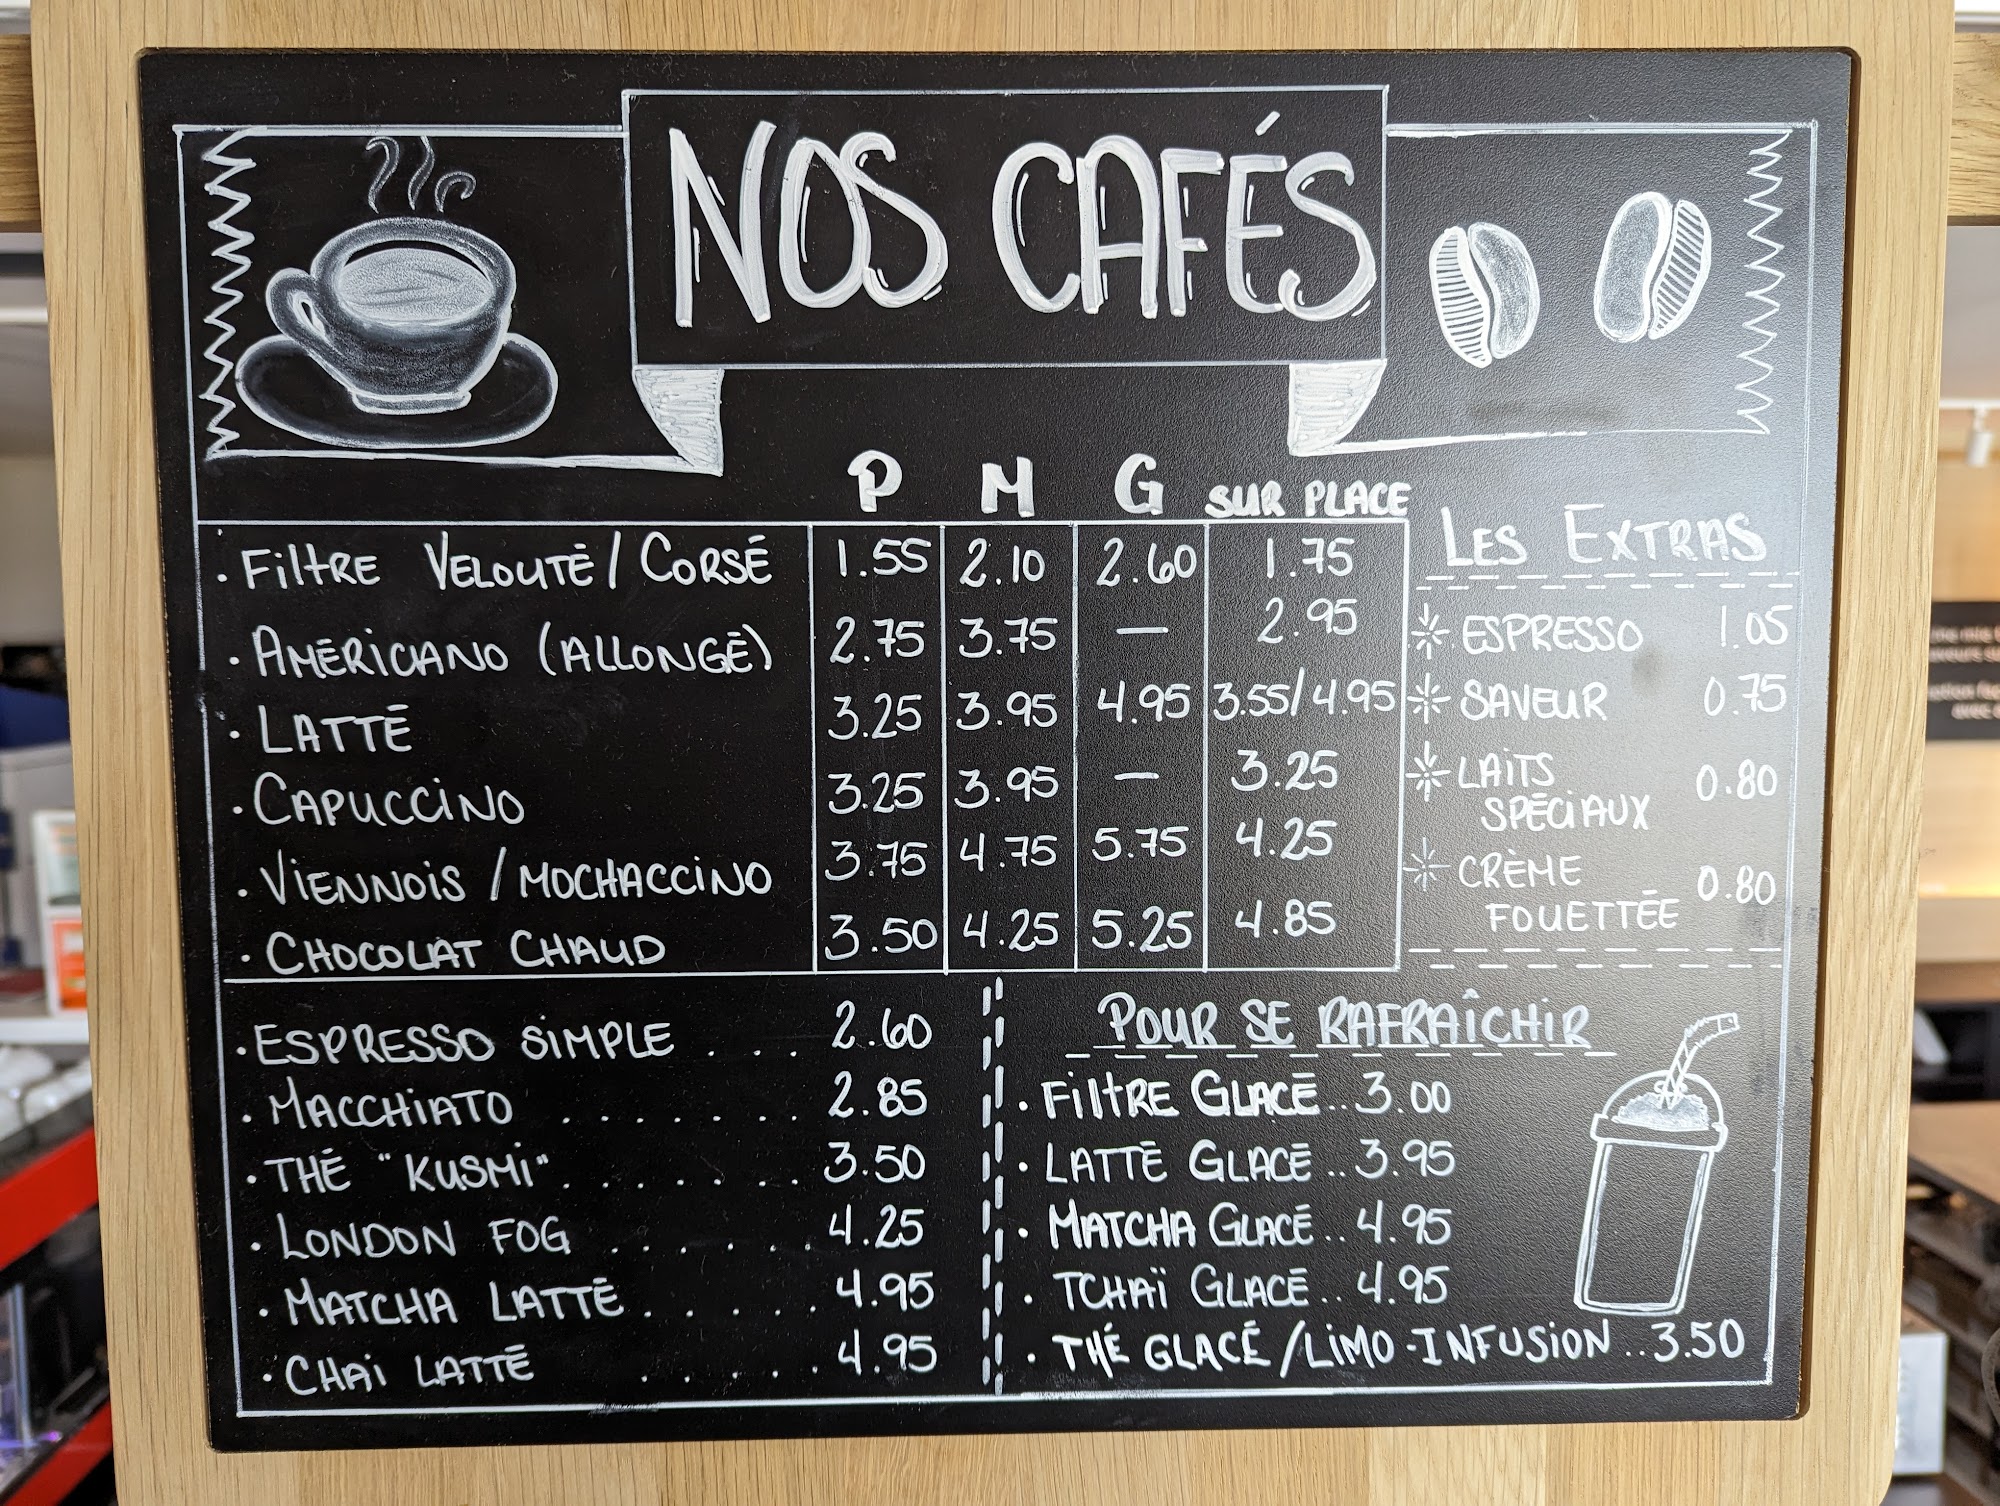 NOS CAFÉS
P M G SUR PLACE
· FILTRE VELOUTÉ / CORSÉ 1.55 2.10 2.60 1.75
· AMÉRICANO (ALLONGÉ) 2.75 3.75 — 2.95
· LATTÉ 3.25 3.95 4.95 3.55/4.95
· CAPUCCINO 3.25 3.95 — 3.25
· VIENNOIS / MOCHACCINO 3.75 4.75 5.75 4.25
· CHOCOLAT CHAUD 3.50 4.25 5.25 4.85
LES EXTRAS
ESPRESSO 1.05
SAVEUR 0.75
LAITS
SPÉCIAUX 0.80
CRÈME
FOUETTÉE 0.80
· ESPRESSO SIMPLE .... 2.60
· MACCHIATO ....... 2.85
· THÉ "KUSMI" ....... 3.50
· LONDON FOG ...... 4.25
· MATCHA LATTÉ ..... 4.95
· CHAI LATTÉ ..... 4.95
POUR SE RAFRAÎCHIR
· FILTRE GLACÉ .. 3.00
· LATTÉ GLACÉ .. 3.95
· MATCHA GLACÉ .. 4.95
· TCHAÏ GLACÉ .. 4.95
· THÉ GLACÉ / LIMO-INFUSION .. 3.50